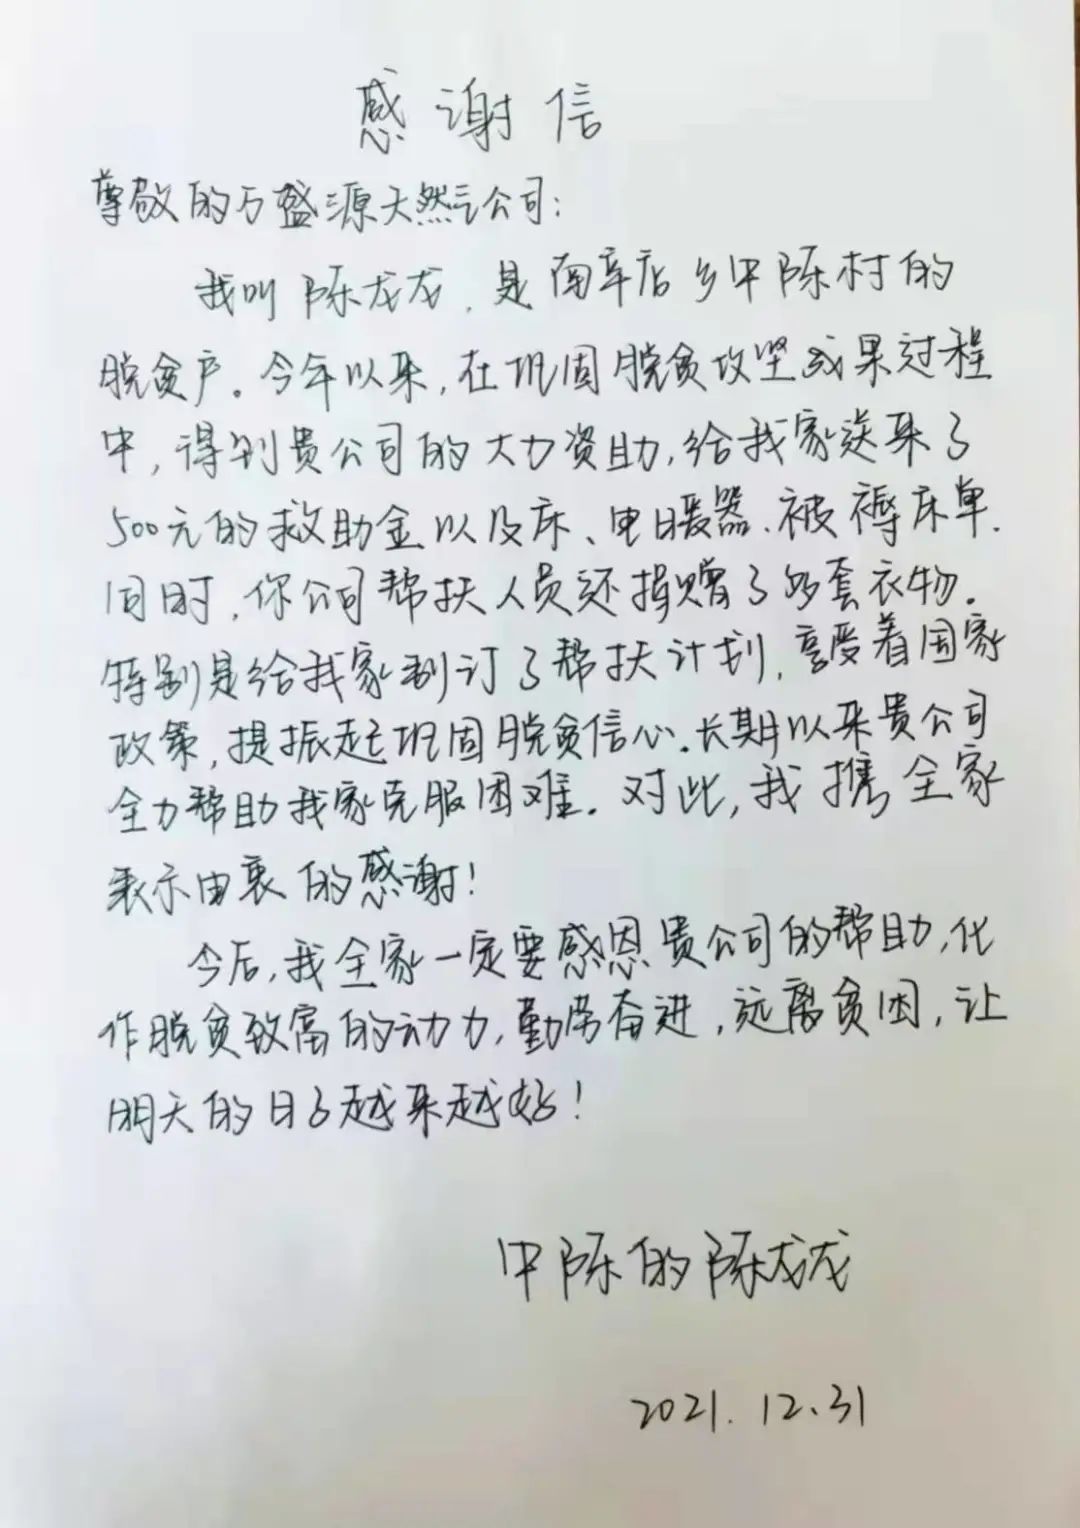 感谢信
尊敬的万盛源天然气公司:
我叫陈龙龙,是南辛店乡中陈村的
脱贫户。今年以来,在巩固脱贫攻坚成果过程
中,得到贵公司的大力资助,给我家送来了
500元的救助金以及床、电暖器、被褥床单.
同时,你公司帮扶人员还捐赠了多套衣物.
特别是给我家制订了帮扶计划,享受着国家
政策,提振起巩固脱贫信心.长期以来贵公司
全力帮助我家克服困难.对此,我携全家
表示由衷的感谢!
今后,我全家一定要感恩贵公司的帮助,化
作脱贫致富的动力,勤劳奋进,远离贫困,让
明天的日子越来越好!
中陈的陈龙龙
2021.12.31